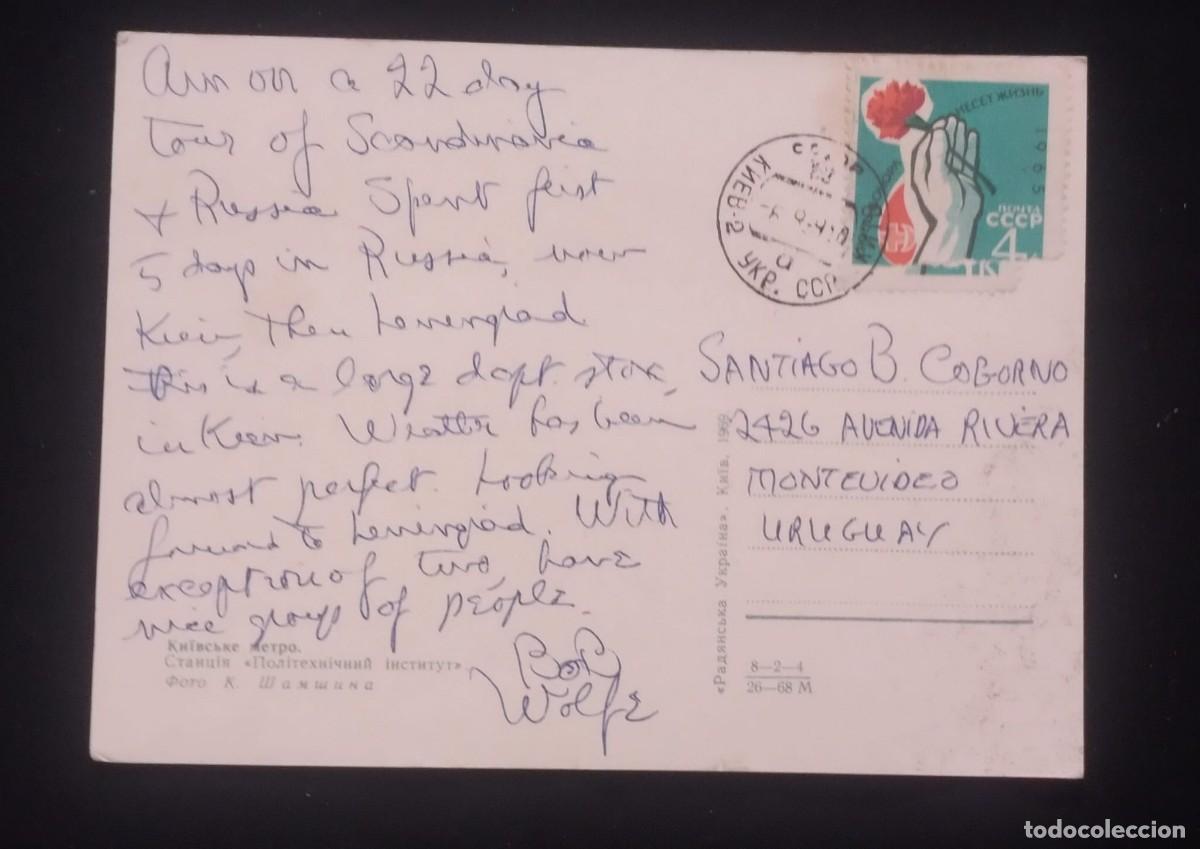 Am on a 22 day
tour of Scandinavia
+ Russia Spent first
5 days in Russia, now
Kiev, then Leningrad
This is a large dept. store,
in Kiev. Weather has been
almost perfect. Looking
forward to Leningrad. With
exception of two, have
nice group of people.
Bob
Wolfe
НЕСЕТ ЖИЗНЬ
1965
ПОЧТА
СССР
4
КИЕВ-2 УКР. ССР
а
SANTIAGO B. COGORNO
2426 AVENIDA RIVERA
MONTEVIDEO
URUGUAY
Київське метро.
Станція «Політехнічний інститут».
Фото К. Шамшина
«Радянська Україна». Київ. 1969
8—2—4
26—68 М
todocoleccion